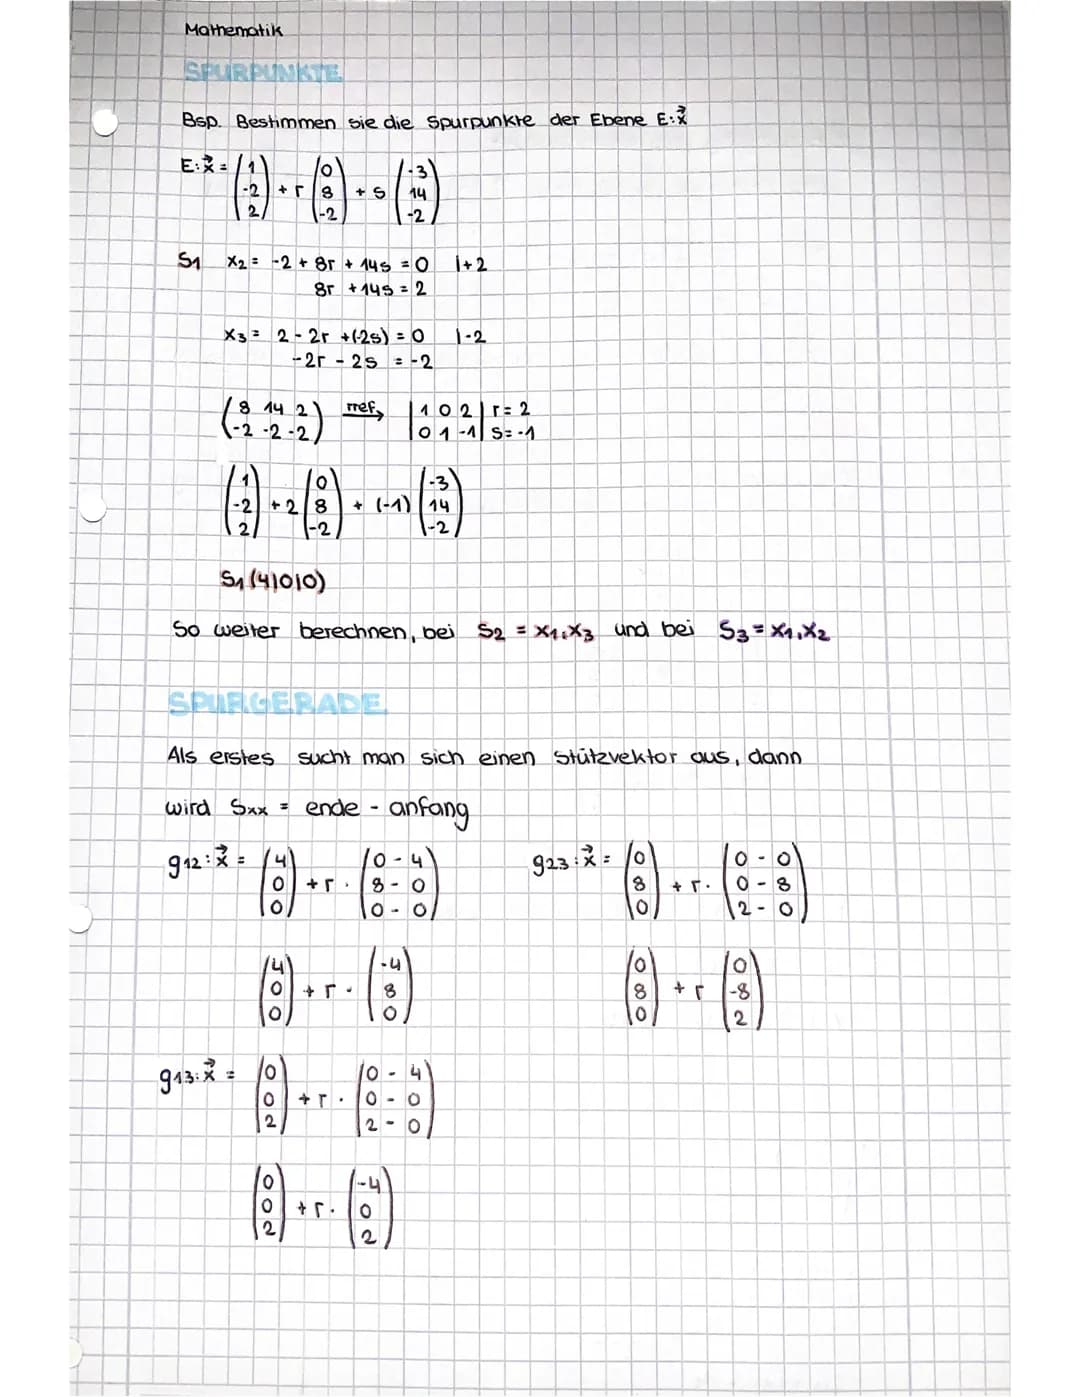 Mathematik
SPURPUNKTE
Bsp. Bestimmen sie die Spurpunkte der Ebene E:x⃗
E:x⃗ = (1 -2 2) + r (0 8 -2) + s (-3 14 -2)
S1 x2 = -2 + 8r + 14s = 0 |+2
8r + 14s = 2
x3 = 2 - 2r +(-2s) = 0 |-2
-2r - 2s = -2
(8 14 2
-2 -2 -2) rref→ |1 0 2| r = 2
|0 1 -1| s = -1
(1 -2 2) + 2 (0 8 -2) + (-1) (-3 14 -2)
S1 (4|0|0)
So weiter berechnen, bei S2 = x1,x3 und bei S3 = x1,x2
SPURGERADE
Als erstes sucht man sich einen Stützvektor aus, dann
wird Sxx = ende - anfang
g12:x⃗ = (4 0 0) + r · (0 - 4 8 - 0 0 - 0)
g23:x⃗ = (0 8 0) + r · (0 - 0 0 - 8 2 - 0)
(4 0 0) + r · (-4 8 0)
(0 8 0) + r (0 -8 2)
g13:x⃗ = (0 0 2) + r · (0 - 4 0 - 0 2 - 0)
(0 0 2) + r · (-4 0 2)